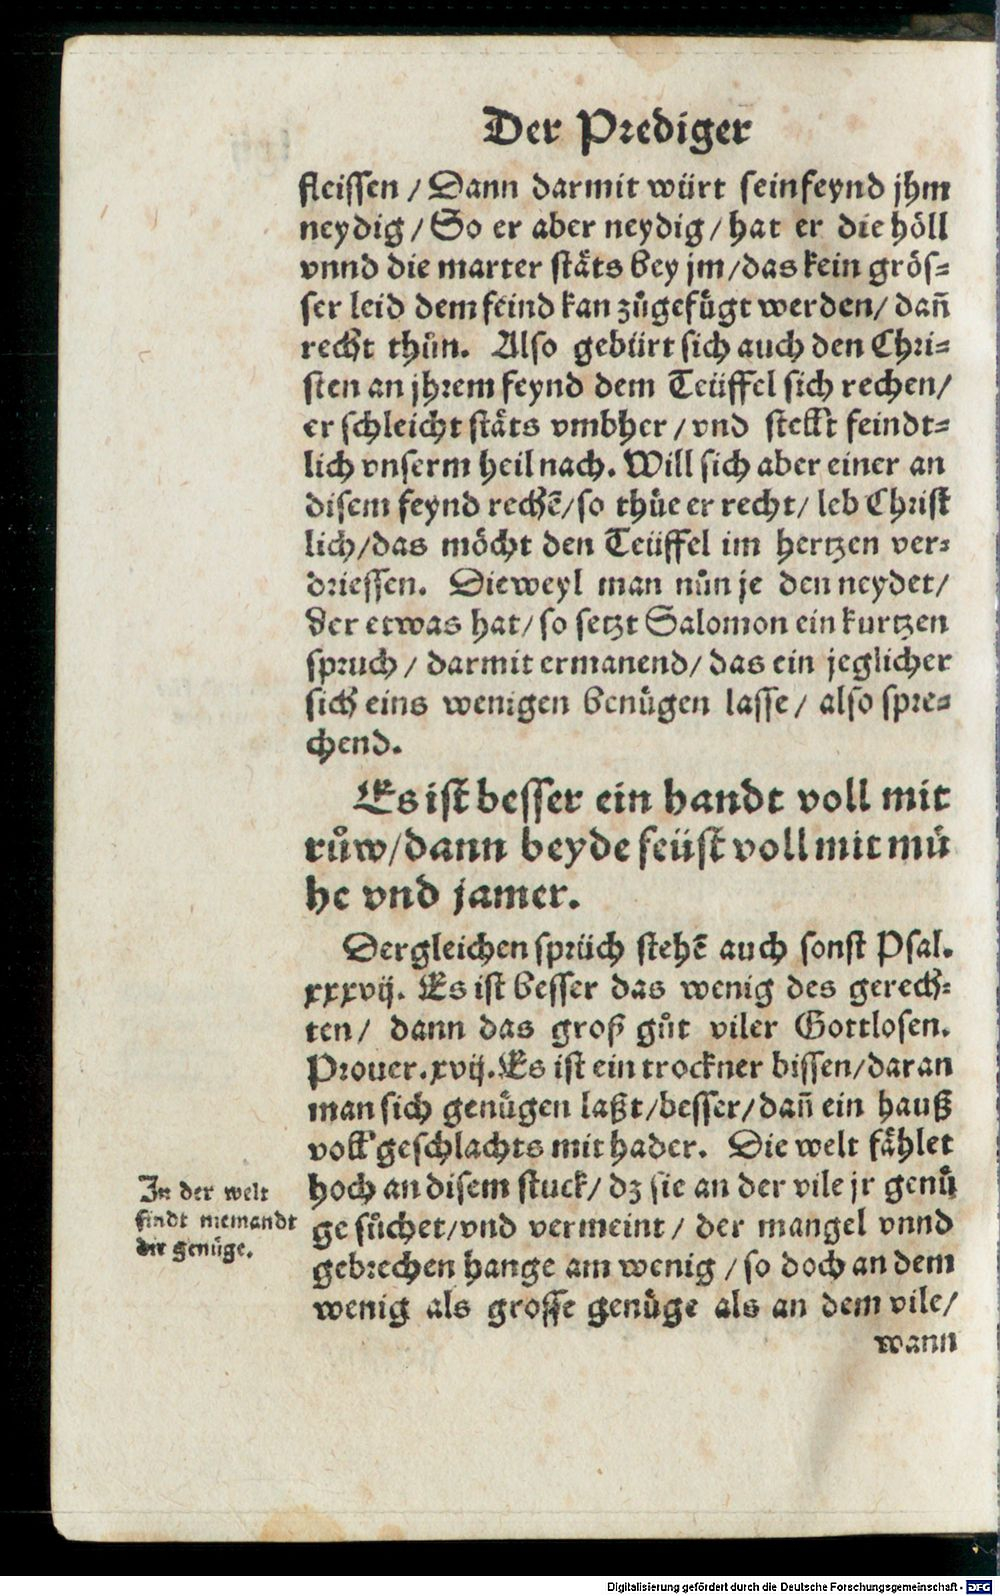 Der Prediger
fleissen / Dann darmit würt sein feynd jhm
neydig / So er aber neydig / hat er die höll
vnnd die marter stäts bey jm / das kein grös⸗
ser leid dem feind kan zůgefügt werden / dañ
recht thůn. Also gebürt sich auch den Chri⸗
sten an jhrem feynd dem Teüffel sich rechen /
er schleicht stäts vmbher / vnd stellt feindt⸗
lich vnserm heil nach. Will sich aber einer an
disem feynd rechẽ / so thůe er recht / leb Christ
lich / das möcht den Teüffel im hertzen ver⸗
driessen. Dieweyl man nůn je den neydet /
der etwas hat / so setzt Salomon ein kurtzen
spruch / darmit ermanend / das ein jeglicher
sich eins wenigen benügen lasse / also spre⸗
chend.
Es ist besser ein handt voll mit
růw / dann beyde feüst voll mit mů
he vnd jamer.
Dergleichen sprüch stehẽ auch sonst Psal.
xxxvij. Es ist besser das wenig des gerech⸗
ten / dann das groß gůt viler Gottlosen.
Prouer. xvij. Es ist ein trockner bissen / daran
man sich genügen laßt / besser / dañ ein hauß
voll geschlachts mit hader. Die welt fählet
hoch an disem stuck / dz sie an der vile jr genů
ge sůchet / vnd vermeint / der mangel vnnd
gebrechen hange am wenig / so doch an dem
wenig als grosse genüge als an dem vile /
wann
In der welt
findt niemandt
die genüge.
Digitalisierung gefördert durch die Deutsche Forschungsgemeinschaft - DFG